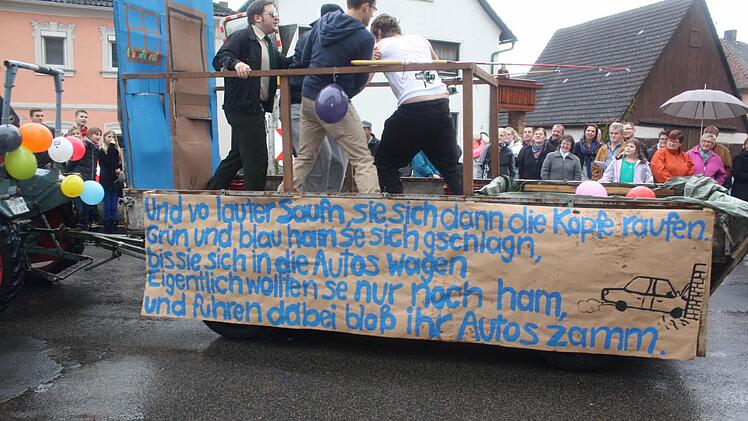 Und vo lauter Saufn, sie sich dann die Köpfe raufen.
Grün und blau ham se sich gschlagn,
bis sie sich in die Autos wagen
Eigentlich wollten se nur noch ham,
und führen dabei bloß ihr Autos zamm.